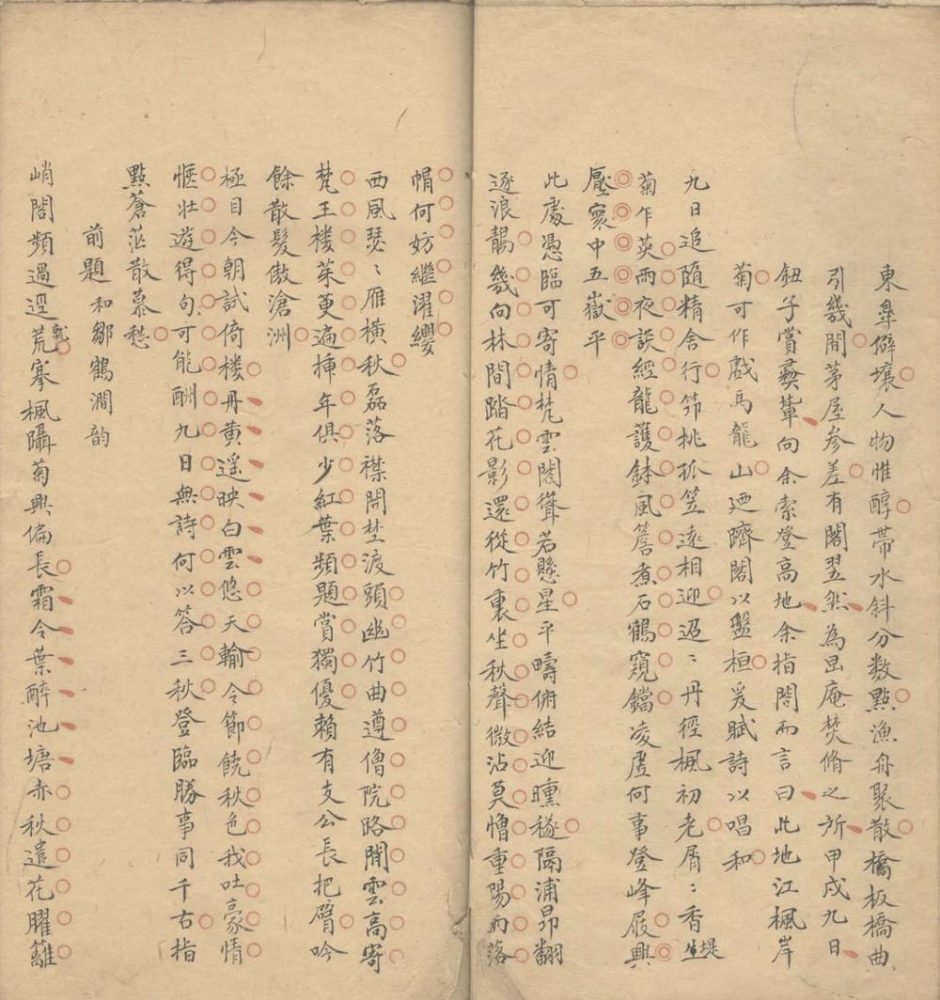 東臯僻壤人物惟醇帶水斜分数點漁舟聚散橋板橋曲
引幾間茅屋參差有閣翌然為岊庵焚脩之所甲戌九日
鈕子賞彞輩向余索登高地余指閣而言曰此地江楓岸
菊可作戲馬龍山廼躋閣以盤桓爰賦詩以唱和
九日追隨精舍行笻挑孤笠遠相迎迢〻丹徑楓初老屑〻香堤
菊乍英雨夜談經龍護鉢風簷煮石鶴窺鐺凌虛何事登峰屐興
壓寰中五嶽平
此處憑臨可寄情梵雲閣聳若懸星平疇俯結迎曛穟隔浦昂翻
逐浪鷸幾向林間踏花影還從竹裏坐秋聲微沾莫憎重陽雨落
帽何妨繼濯纓
西風瑟〻雁橫秋磊落襟開埜渡頭幽竹曲遵僧院路閒雲高寄
梵王楼茱萸遍插年俱少紅葉頻題賞獨優賴有支公長把臂吟
餘散髮傲滄洲
極目今朝試倚楼丹黄遥映白雲悠天輸令節饒秋色我吐豪情
愜壯遊得句可能酬九日無詩何以答三秋登臨勝事同千古指
點蒼茫散暮愁
前題 和鄒鶴澗韵
峭閣頻過逕就荒搴楓躡菊興偏長霜令葉醉池塘赤秋遣花曜籬